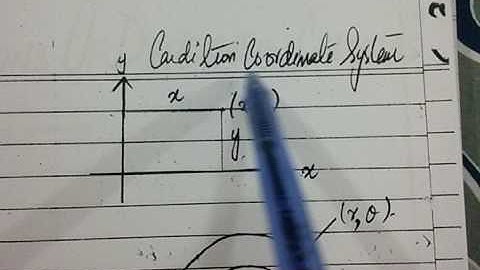 y Cardition Coordinate System
x
y
x
(r, θ).